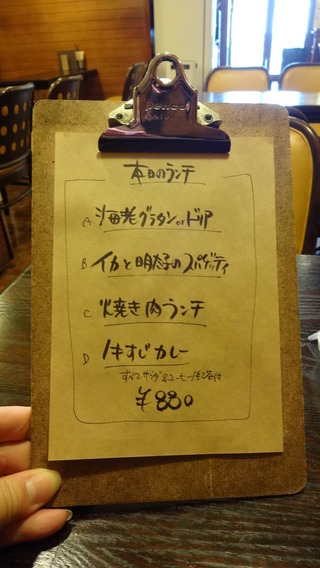 本日のランチ
A 海老グラタンorドリア
B イカと明太子のスパゲッティ
C 焼き肉ランチ
D 牛すじカレー
すべてサラダ&コーヒー/紅茶付
¥880